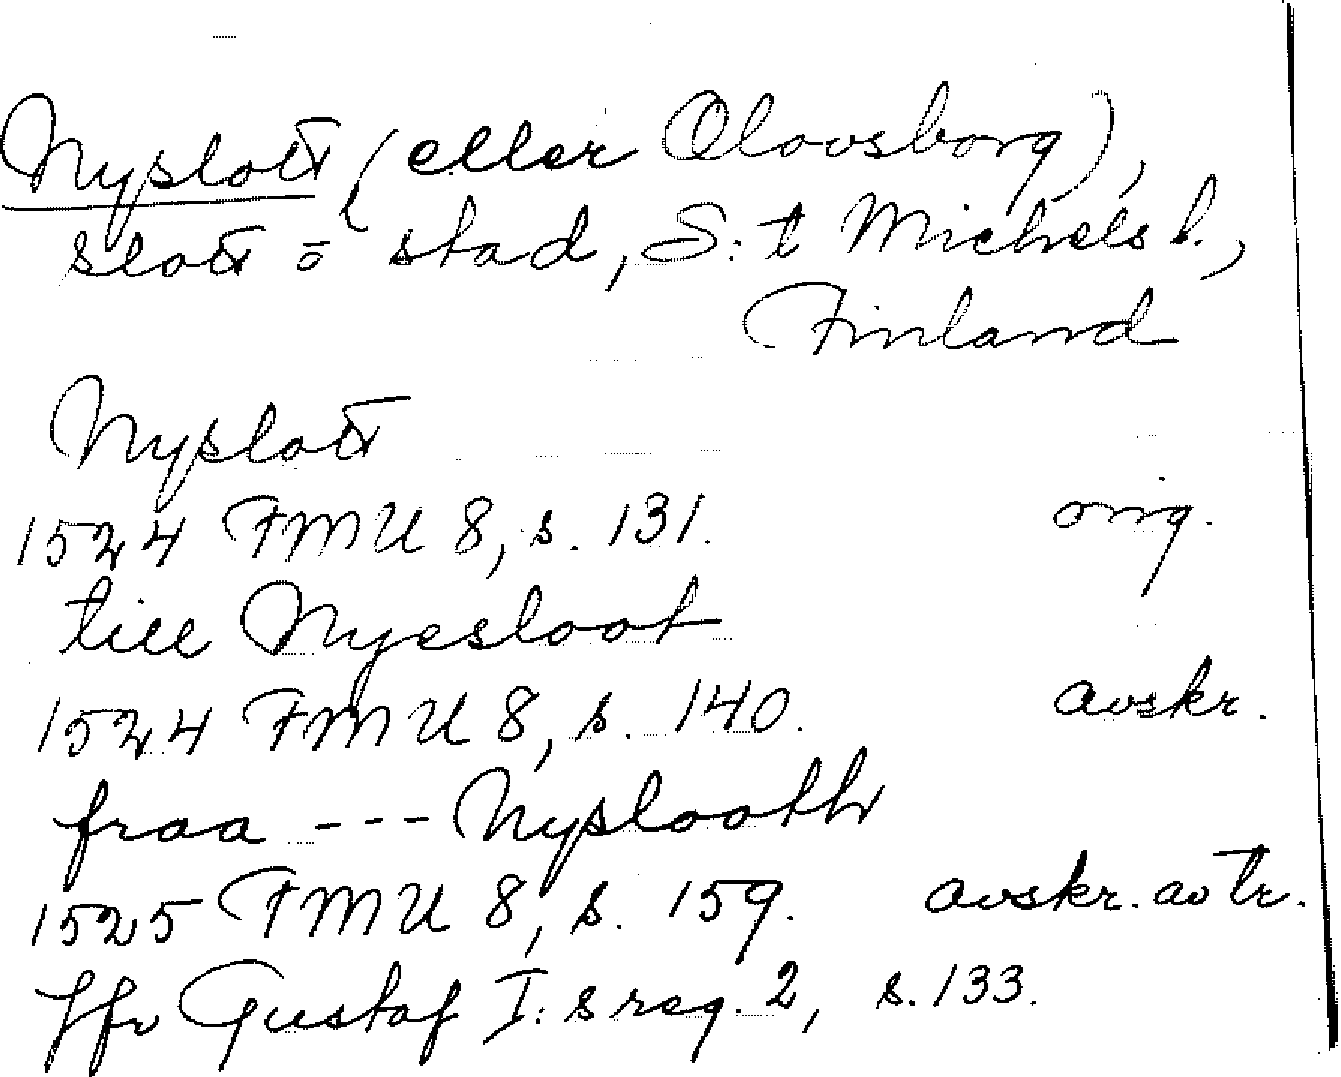 Nyslott (eller Olovsborg),
slott o stad, S:t Michels l.,
Finland
Nyslott
1524 FMU 8, s. 131. orig.
till Nyesloot
1524 FMU 8, s. 140. avskr.
fraa --- Nyslooth
1525 FMU 8, s. 159. avskr. av tr.
Jfr Gustaf I:s reg. 2, s. 133.